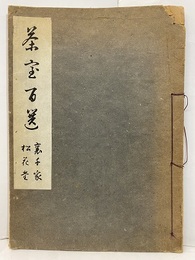 茶室百選
裏千家
松花堂